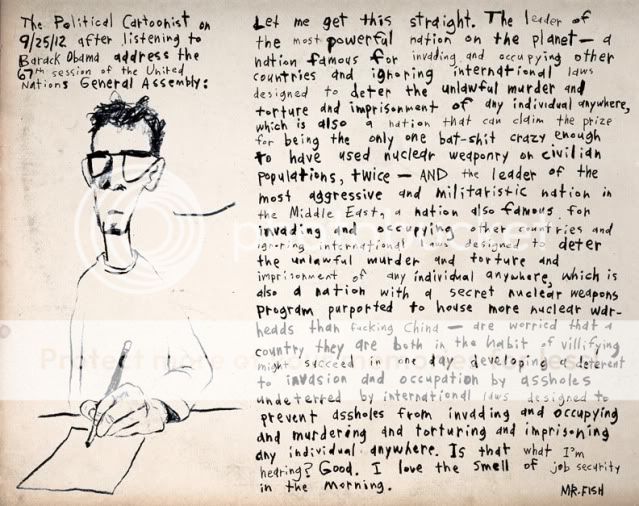 The Political Cartoonist on
9/25/12 after listening to
Barack Obama address the
67th session of the United
Nations General Assembly:
Let me get this straight. The leader of
the most powerful nation on the planet — a
nation famous for invading and occupying other
countries and ignoring international laws
designed to deter the unlawful murder and
torture and imprisonment of any individual anywhere,
which is also a nation that can claim the prize
for being the only one bat-shit crazy enough
to have used nuclear weaponry on civilian
populations, twice — AND the leader of the
most aggressive and militaristic nation in
the Middle East, a nation also famous for
invading and occupying other countries and
ignoring international laws designed to deter
the unlawful murder and torture and
imprisonment of any individual anywhere, which is
also a nation with a secret nuclear weapons
program purported to house more nuclear war-
heads than fucking China — are worried that a
country they are both in the habit of villifying
might succeed in one day developing a deterent
to invasion and occupation by assholes
undeterred by international laws designed to
prevent assholes from invading and occupying
and murdering and torturing and imprisoning
any individual anywhere. Is that what I'm
hearing? Good. I love the smell of job security
in the morning.
MR. FISH